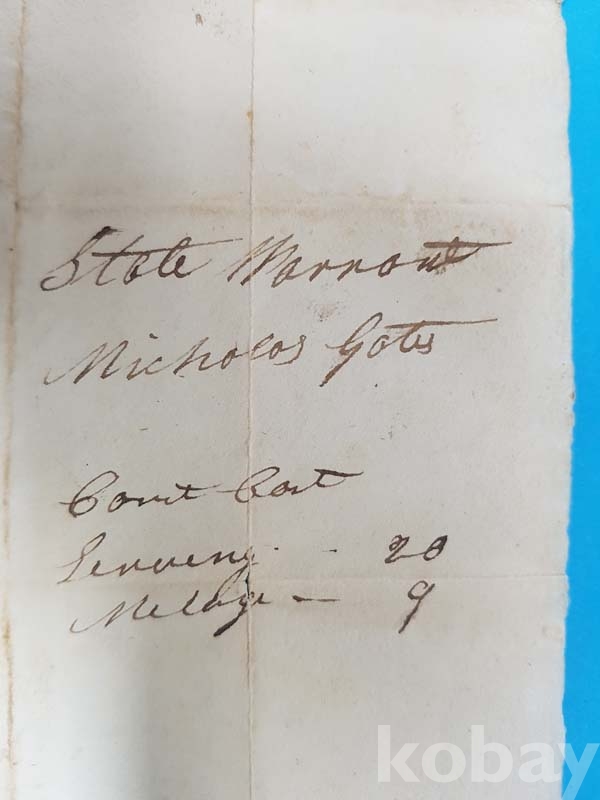 State Warrant
Nicholas Gates
Court Cost
Serveng - 20
Melage — 9
kobay